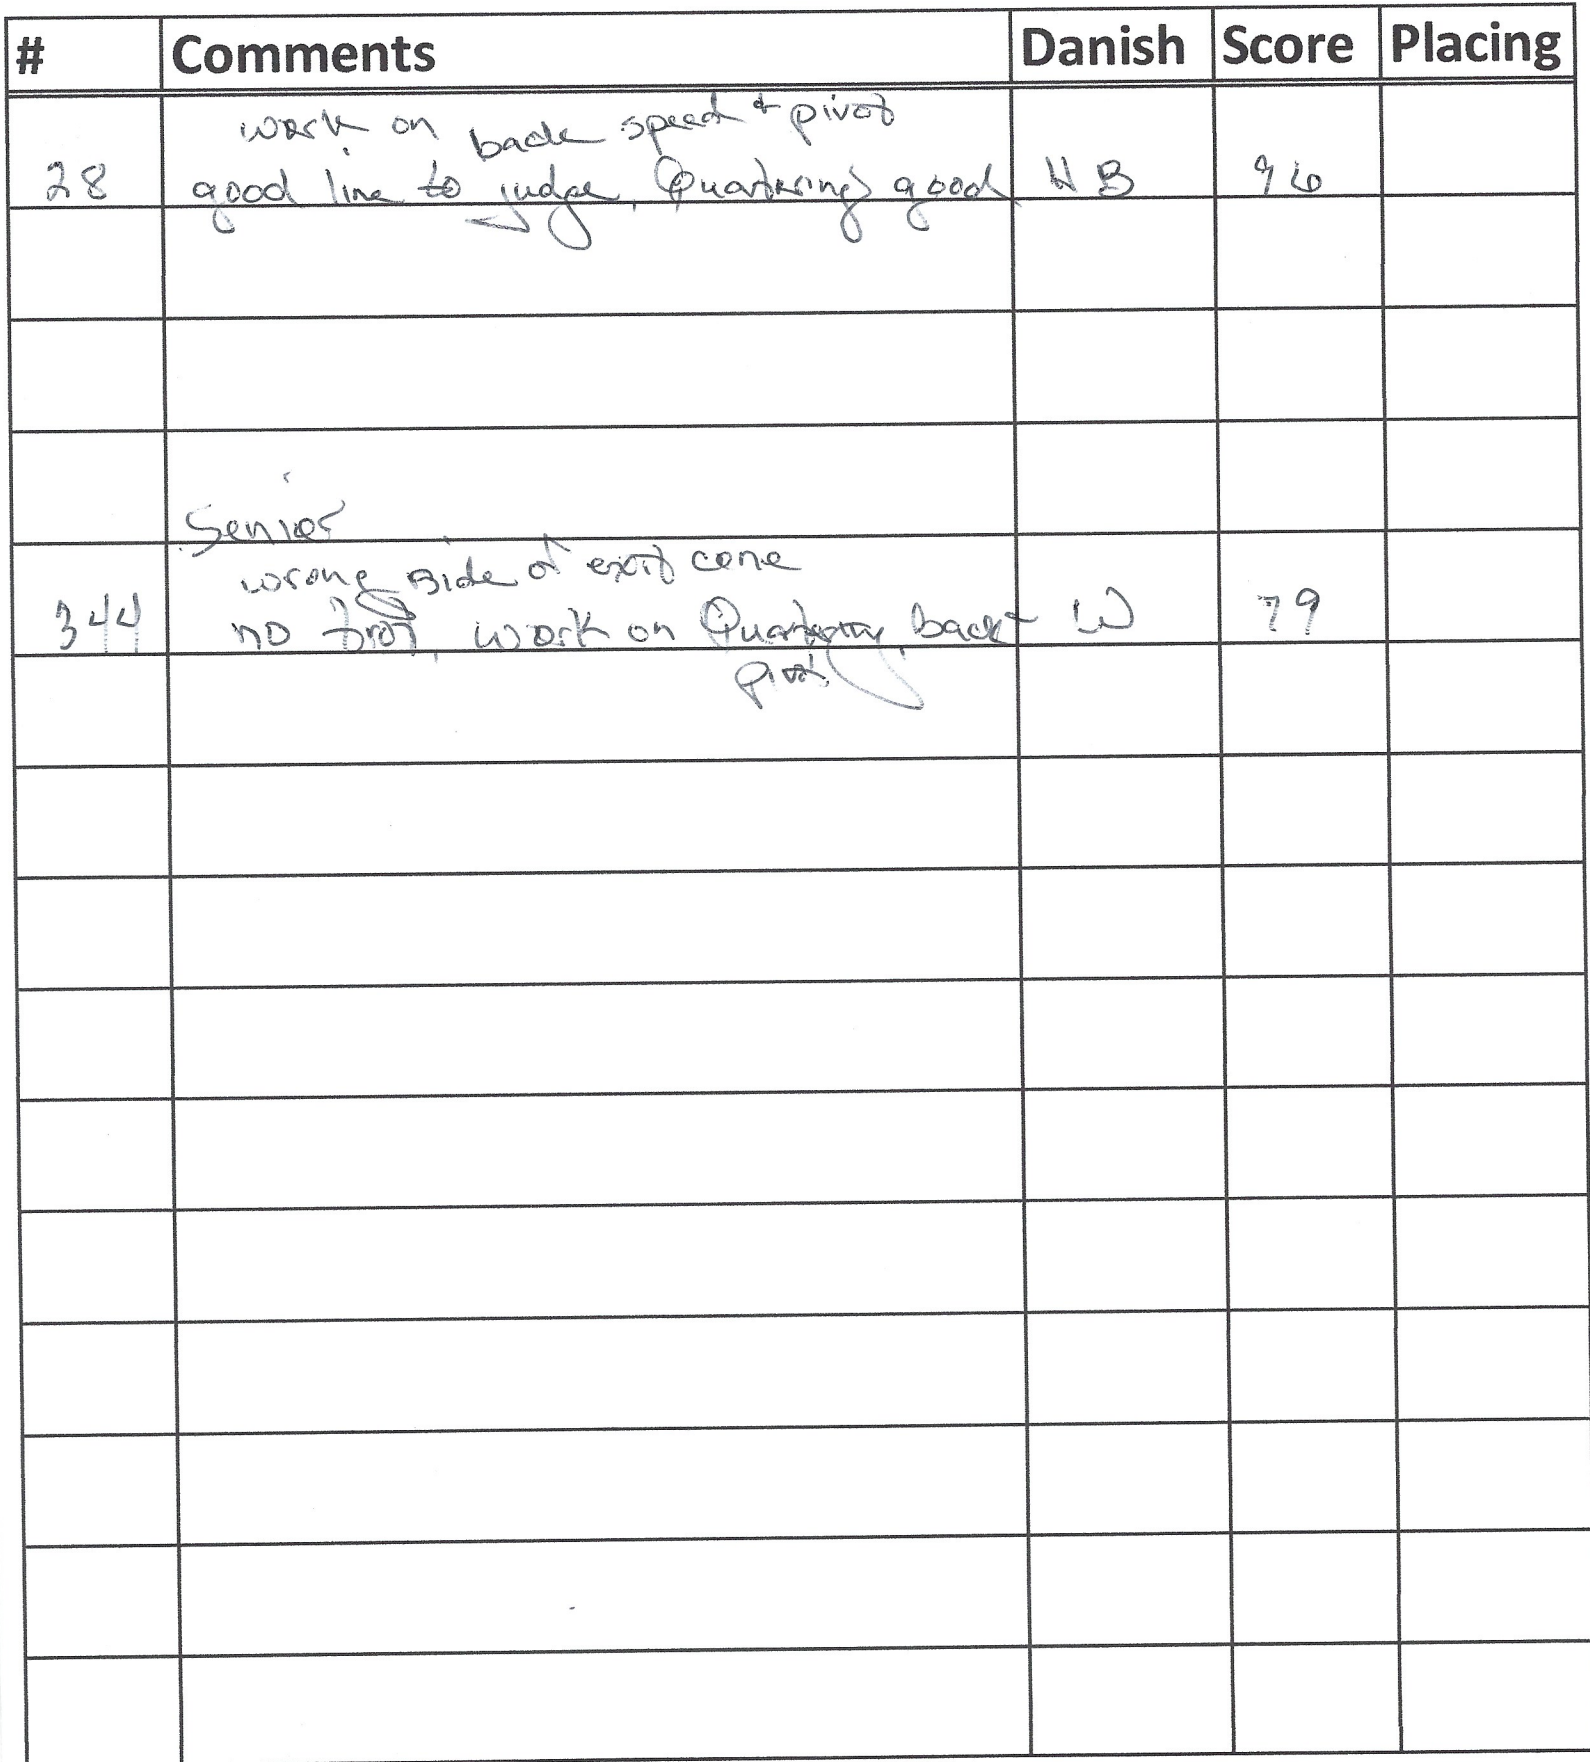 # Comments Danish Score Placing
work on back speed + pivot
28 good line to judge, Quartering good HB 96
Senior
wrong side of exit cone
344 no trot, work on Quartering, back W 79
pivot